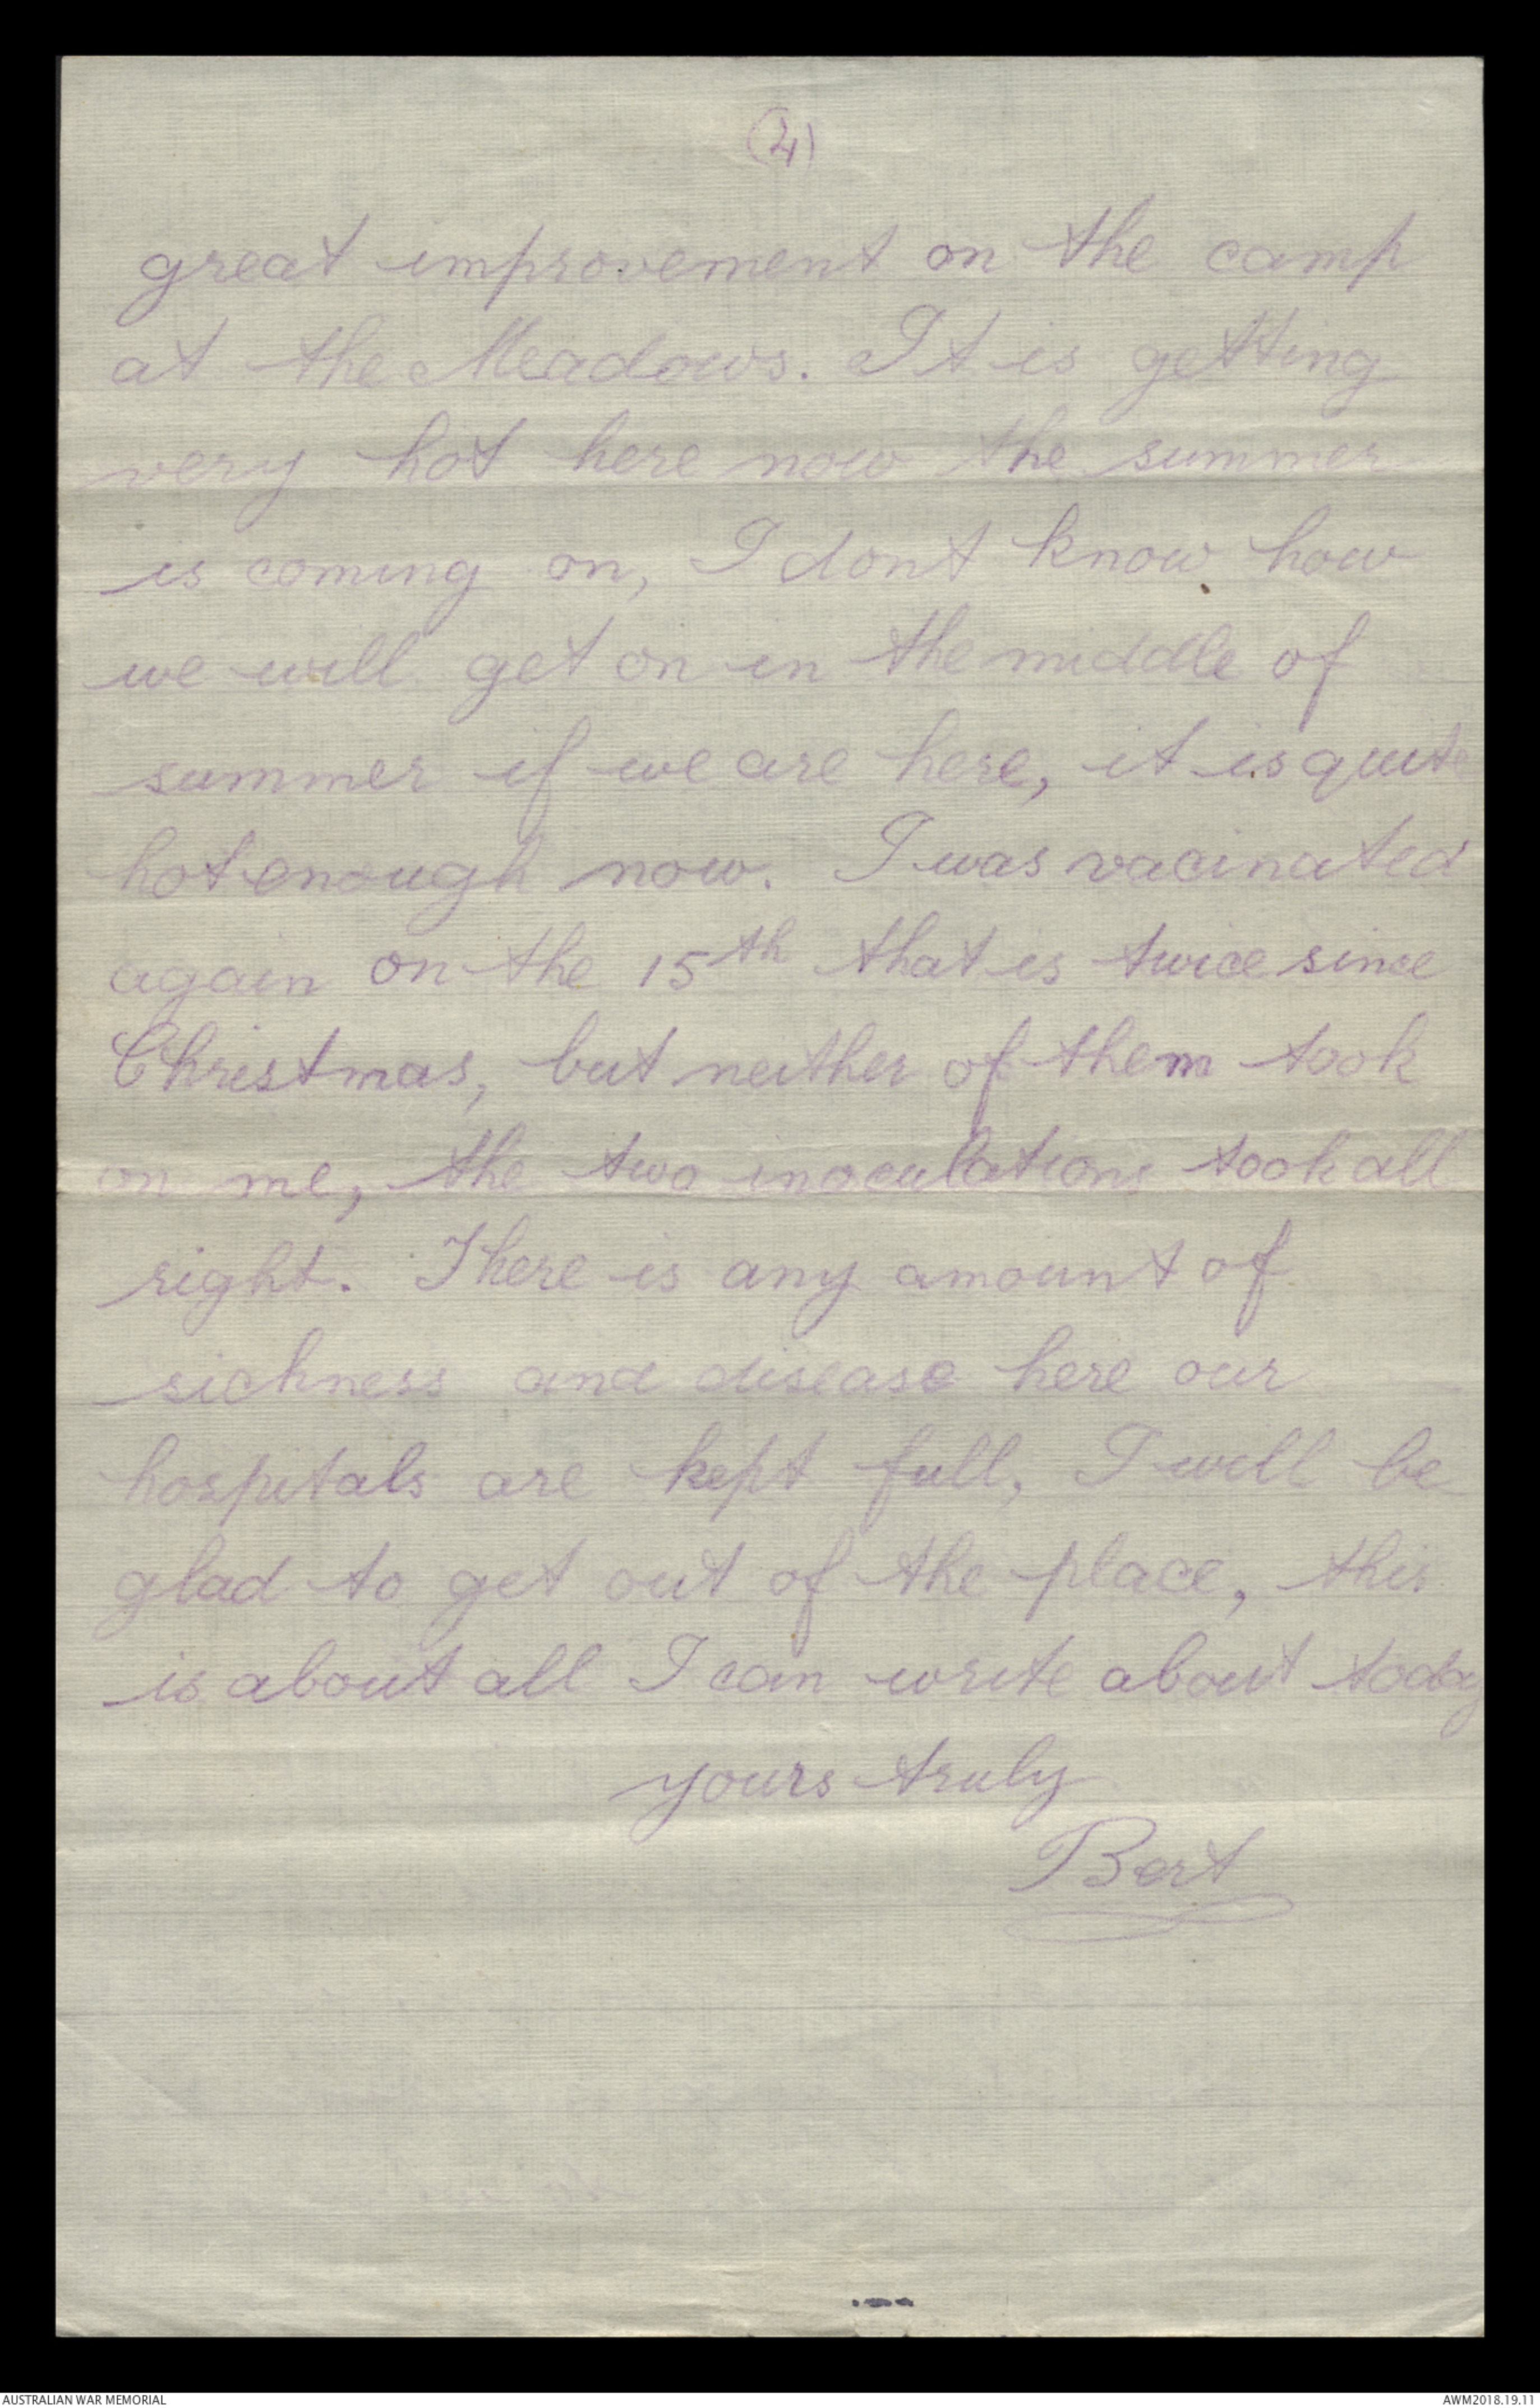 (4)
great improvement on the camp
at the Meadows. It is getting
very hot here now the summer
is coming on, I dont know how
we will get on in the middle of
summer if we are here, it is quite
hot enough now. I was vacinated
again on the 15th that is twice since
Christmas, but neither of them took
on me, the two inoculations took all
right. There is any amount of
sickness and disease here our
hospitals are kept full, I will be
glad to get out of the place, this
is about all I can write about today
yours truly
Bert
AUSTRALIAN WAR MEMORIAL
AWM2018.19.11